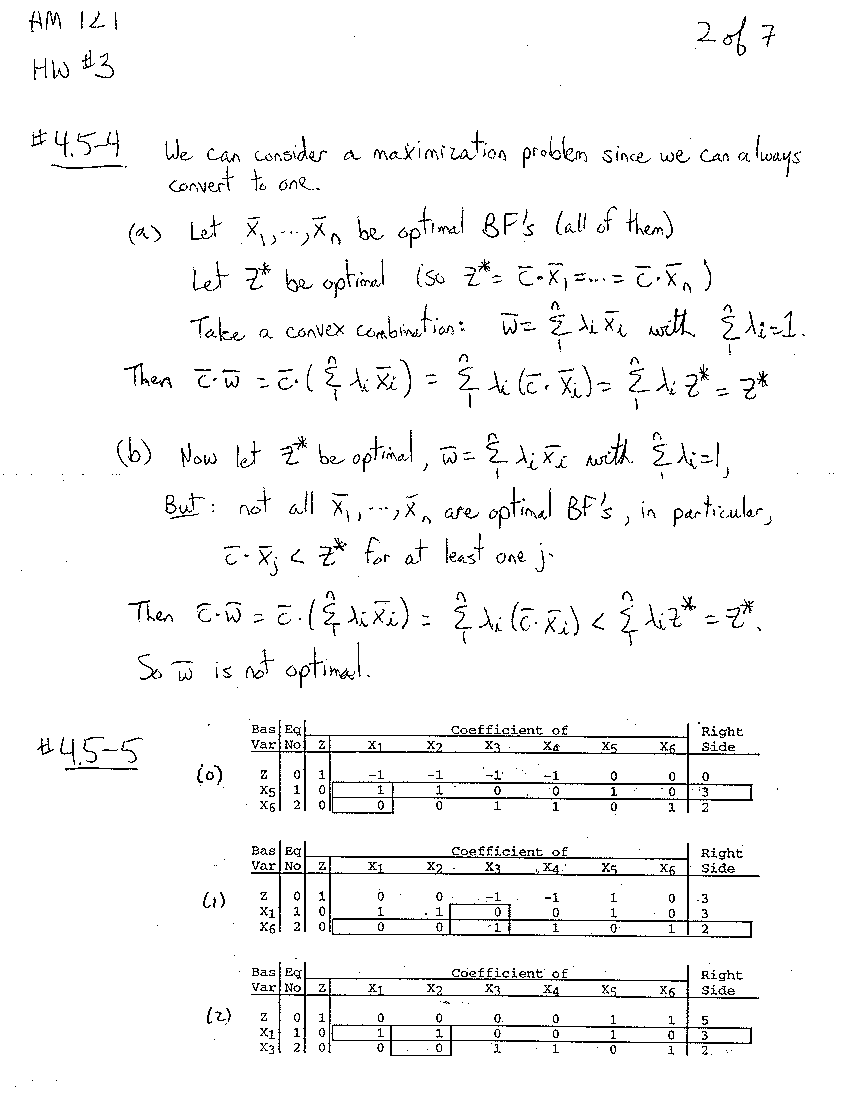 AM 121
2 of 7
HW #3
#4.5-4 We can consider a maximization problem since we can always
convert to one.
(a) Let x̄₁,...,x̄ₙ be optimal BF's (all of them)
Let Z* be optimal (so Z* = c̄·x̄₁ = ... = c̄·x̄ₙ)
Take a convex combination: w̄ = Σ₁ⁿ λᵢx̄ᵢ with Σ₁ⁿ λᵢ=1.
Then c̄·w̄ = c̄·(Σ₁ⁿ λᵢx̄ᵢ) = Σ₁ⁿ λᵢ(c̄·x̄ᵢ) = Σ₁ⁿ λᵢ Z* = Z*
(b) Now let Z* be optimal, w̄ = Σ₁ⁿ λᵢx̄ᵢ with Σ₁ⁿ λᵢ=1,
But: not all x̄₁,...,x̄ₙ are optimal BF's, in particular,
c̄·x̄ⱼ < Z* for at least one j.
Then c̄·w̄ = c̄·(Σ₁ⁿ λᵢx̄ᵢ) = Σ₁ⁿ λᵢ(c̄·x̄ᵢ) < Σ₁ⁿ λᵢZ* = Z*.
So w̄ is not optimal.
#4.5-5
Bas Eq Coefficient of Right
Var No Z X1 X2 X3 X4 X5 X6 Side
(0) Z 0 1 -1 -1 -1 -1 0 0 0
X5 1 0 1 1 0 0 1 0 3
X6 2 0 0 0 1 1 0 1 2
Bas Eq Coefficient of Right
Var No Z X1 X2 X3 X4 X5 X6 Side
(1) Z 0 1 0 0 -1 -1 1 0 3
X1 1 0 1 1 0 0 1 0 3
X6 2 0 0 0 1 1 0 1 2
Bas Eq Coefficient of Right
Var No Z X1 X2 X3 X4 X5 X6 Side
(2) Z 0 1 0 0 0 0 1 1 5
X1 1 0 1 1 0 0 1 0 3
X3 2 0 0 0 1 1 0 1 2